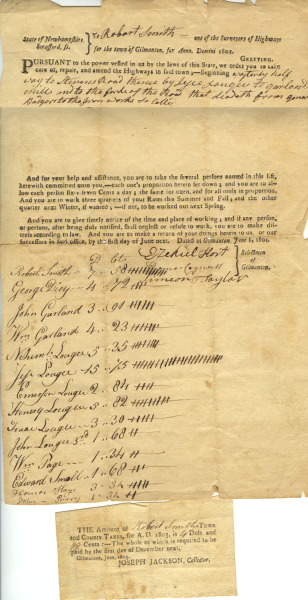 State of Newhampshire, To Robert Smith one of the Surveyors of Highways
Strafford, ss. for the town of Gilmanton, for Anno. Domini 1801.
GREETING.
PURSUANT to the power vested in us by the laws of this State, we order you to take
care of, repair, and amend the Highways in said town;—Beginning half
way to Stevens Road thence by Lougee to garland
mills and to the of the road that leadeth from
to the works so called
And for your help and assistance, you are to take the several persons named in this list,
herewith committed unto you,—each one's proportion herein set down; and you are to al-
low each person Cents a day; the same for oxen, and for all tools in proportion.
And you are to work three quarters of your Rates this Summer and Fall; and the other
quarter next Winter, if wanted;—if not, to be worked out next Spring.
And you are to give timely notice of the time and place of working; and if any person,
or persons, after being duly notified, shall neglect or refuse to work, you are to make
distress according to law. And you are to make a return of your doings herein to us, or our
successors in said office, by the first day of June next. Dated at Gilmanton June 1, 1801.
Ezekiel Hoit
Simeon Taylor
Selectmen
of
Gilmanton.
D Cts
Robert Smith 7 58
George Dicy 4 72
John Garland 3 91
Wm Garland 4 23
Nehemh Lougee 5 35
Lougee 15 75
Lougee 2 84
Henery Lougee 5 82
Isaac Lougee 3 30
John Lougee 3rd 1 68
Wm Page 1 34
Edward Small 1 68
Thomas 3 34
John 1 34
THE Amount of Robert Smiths Town
and County Taxes, for A.D. 1803, is 4 Dols and
Cents:—The whole of which is required to be
paid by the first day of December next.
Gilmanton, June, 1803.
JOSEPH JACKSON, Collector.